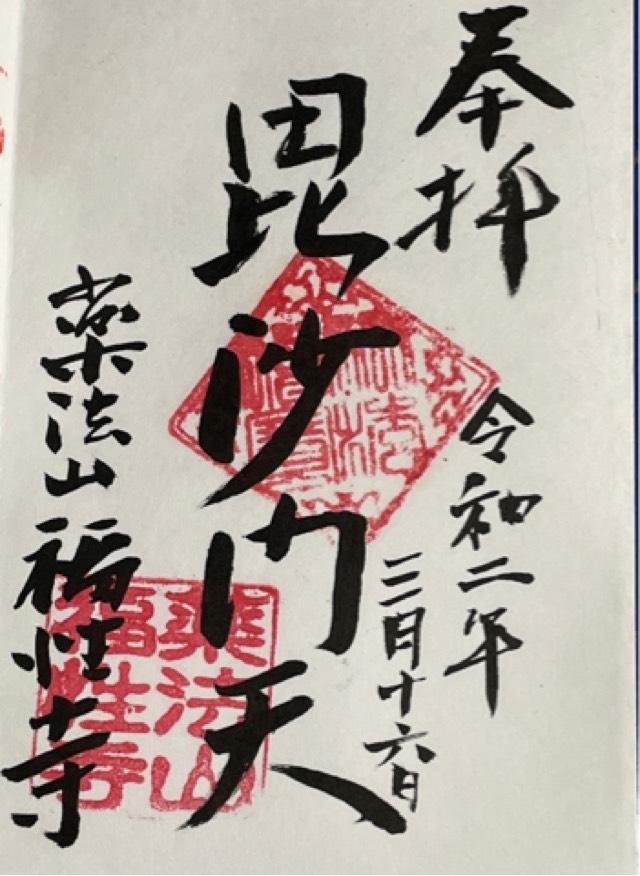 奉拝
令和二年
三月十六日
毘沙門天
薬法山福性寺
薬法山
福性寺